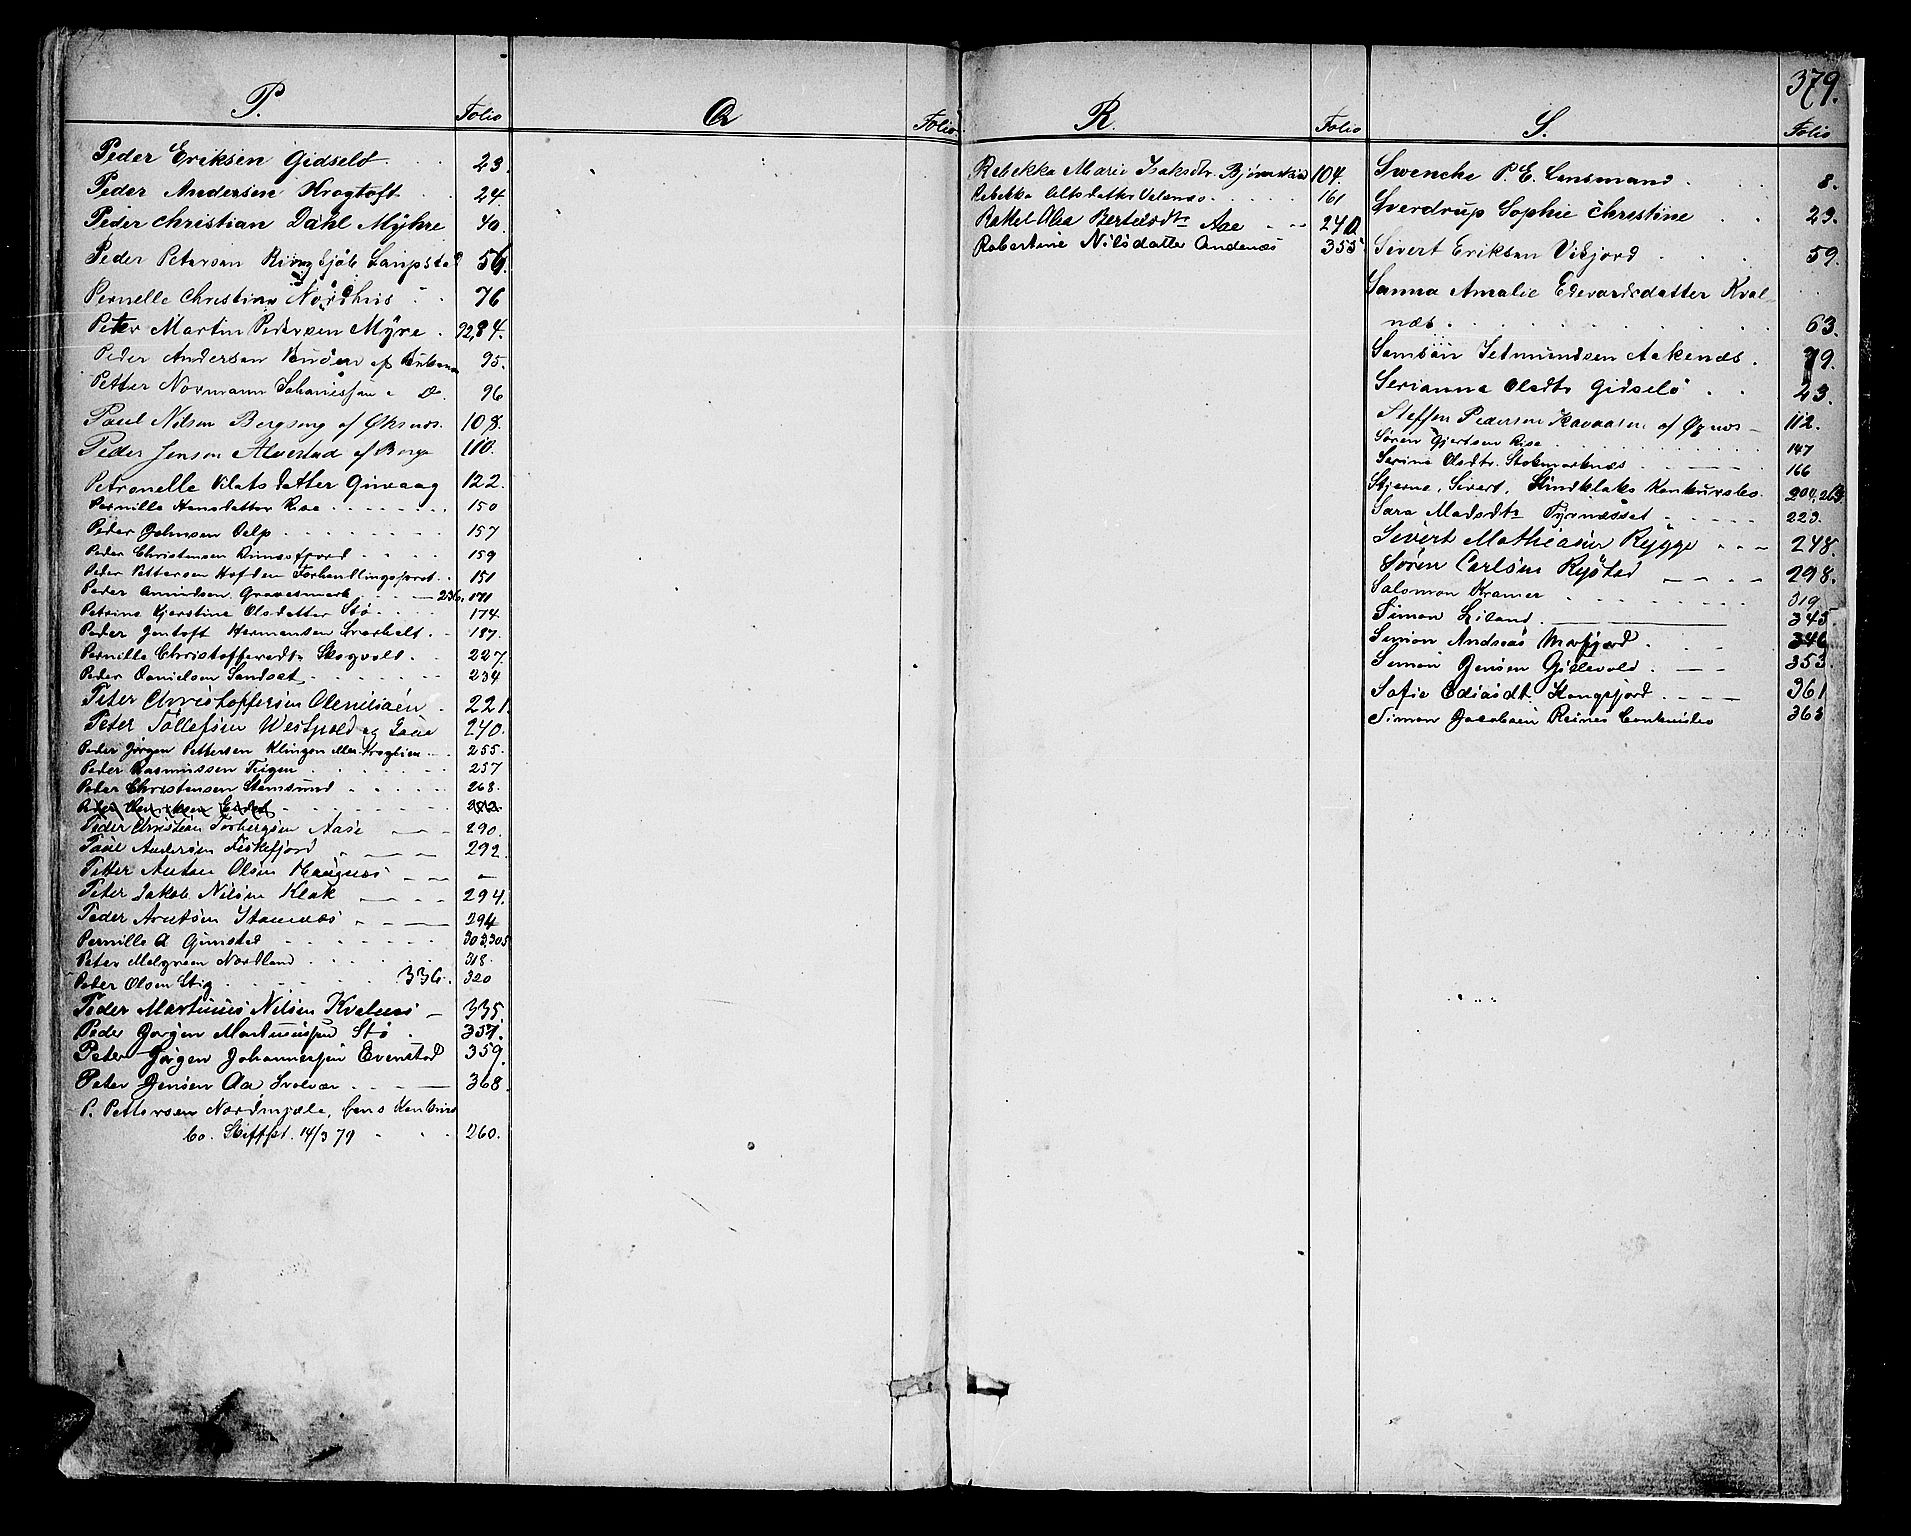 379.
P. Folio
Peder Eriksen Gidselö 23.
Peder Andersen Krogtoft 24
Peder Christian Dahl Myhre 40.
Peder Petersen 56.
Pernelle Christine Nordhus 76
Peter Martin Pedersen Myre 72,84.
Peder Andersen af 95.
Petter Normann Johanissen 96
Paul Nilsen Bergseng af Øksnæs 108.
Peder Jenson Alvestad af Borge 110.
Petronelle Olatsdatter Guvaag 122.
Pernille Hansdatter Rise 150
Peder Johnsen Valp 157
Peder Christensen Rømsofjord 159
Peder Pettersen Hofden Forhandlingsprot. 151
Peder Amundsen Gravermark 236, 171
Petrine Kjerstine Olsdatter Stø 174.
Peder Jentoft Hermansen Svarholt 187.
Pernille Christoffersdtr Skogvold 227.
Peder Danielsen Sandset 234
Peter Christoffersen Olenilsøen 221.
Peter Tollefsen Westpold og 240.
Peder Jørgen Pettersen Klingen eller Kroglien 255.
Peder Rasmussen Teigen 257
Peder Christensen Stemsund 268.
Peder Henriksen Eidet 282
Peder Christian Torbergsen Aase 290.
Paul Andersen Fiskefjord 292.
Petter Anton Olsen Haugnæs –
Peter Jakob Nilsen Klak 294.
Peder Arntsen Stamnæs 294
Pernille A Gimstad 303,305
Peter Melgreen Nordland 318.
Peder Olsen Stig 336. 320
Peder Martinus Nilsen Kvalnes 335.
Peder Jørgen Martinussen Stø 357.
Peter Jørgen Johannessen Evenstad 359.
Peter Jensen Aa Svolvær 368.
P. Pettersen Nordmjæle, hans Konkurs
bo. Skiftpt. 14/3 79 260.
Q Folio.
R. Folio
Rebekka Marie Isaksdtr. Bjørnskin 104.
Rebekka Oltsdatter Velenæs 161
Rakkel Alea Bertelsdtr Aae 240
Robertine Nilsdatter Andenæs 355
S. Folio
Swenche P. E. Lensmand 8.
Sverdrup Sophie Christine 23.
Sivert Eriksen Vikjord 59.
Sanna Amalie Edevardsdatter Kval-
næs 63.
Samsøn Setmundsen Aakenæs 79.
Serianna Olsdtr Gidselö 23.
Steffen Pedersen af 112.
Søren Gjertsen Rise 147
Serine Olsdtr. Stokmarknæs 166
Stjerne, Sivert, Konkursbo. 204,263
Sara Madsdtr Tyrnæsset 223.
Sivert Matheasen Rygge 248.
Søren Carlsen Rystad 298.
Salomon Kramer 319
Simon Liland 345.
Simon Andreas Morfjord 346
Simon Jensen Gidevold 353.
Sofie Ediasdt. Kongsfjord 361
Simon Jacobsen Reines Konkursbo 363